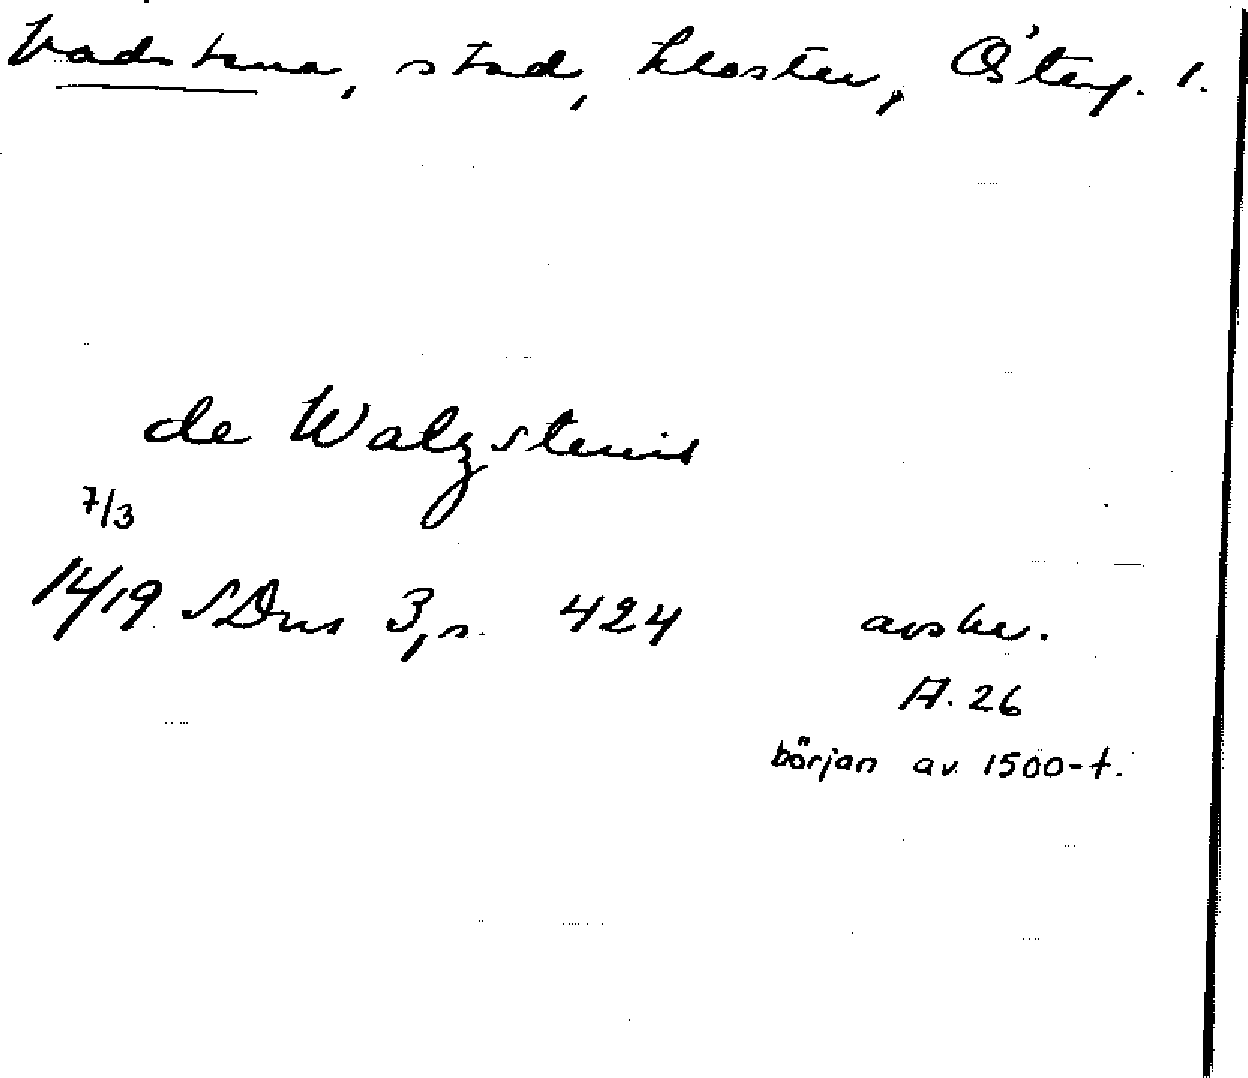 Vadstena, stad, kloster, Österg. l.
de Walzstenis
7/3
1419 SDns 3, s. 424 avskr.
A. 26
början av 1500-t.